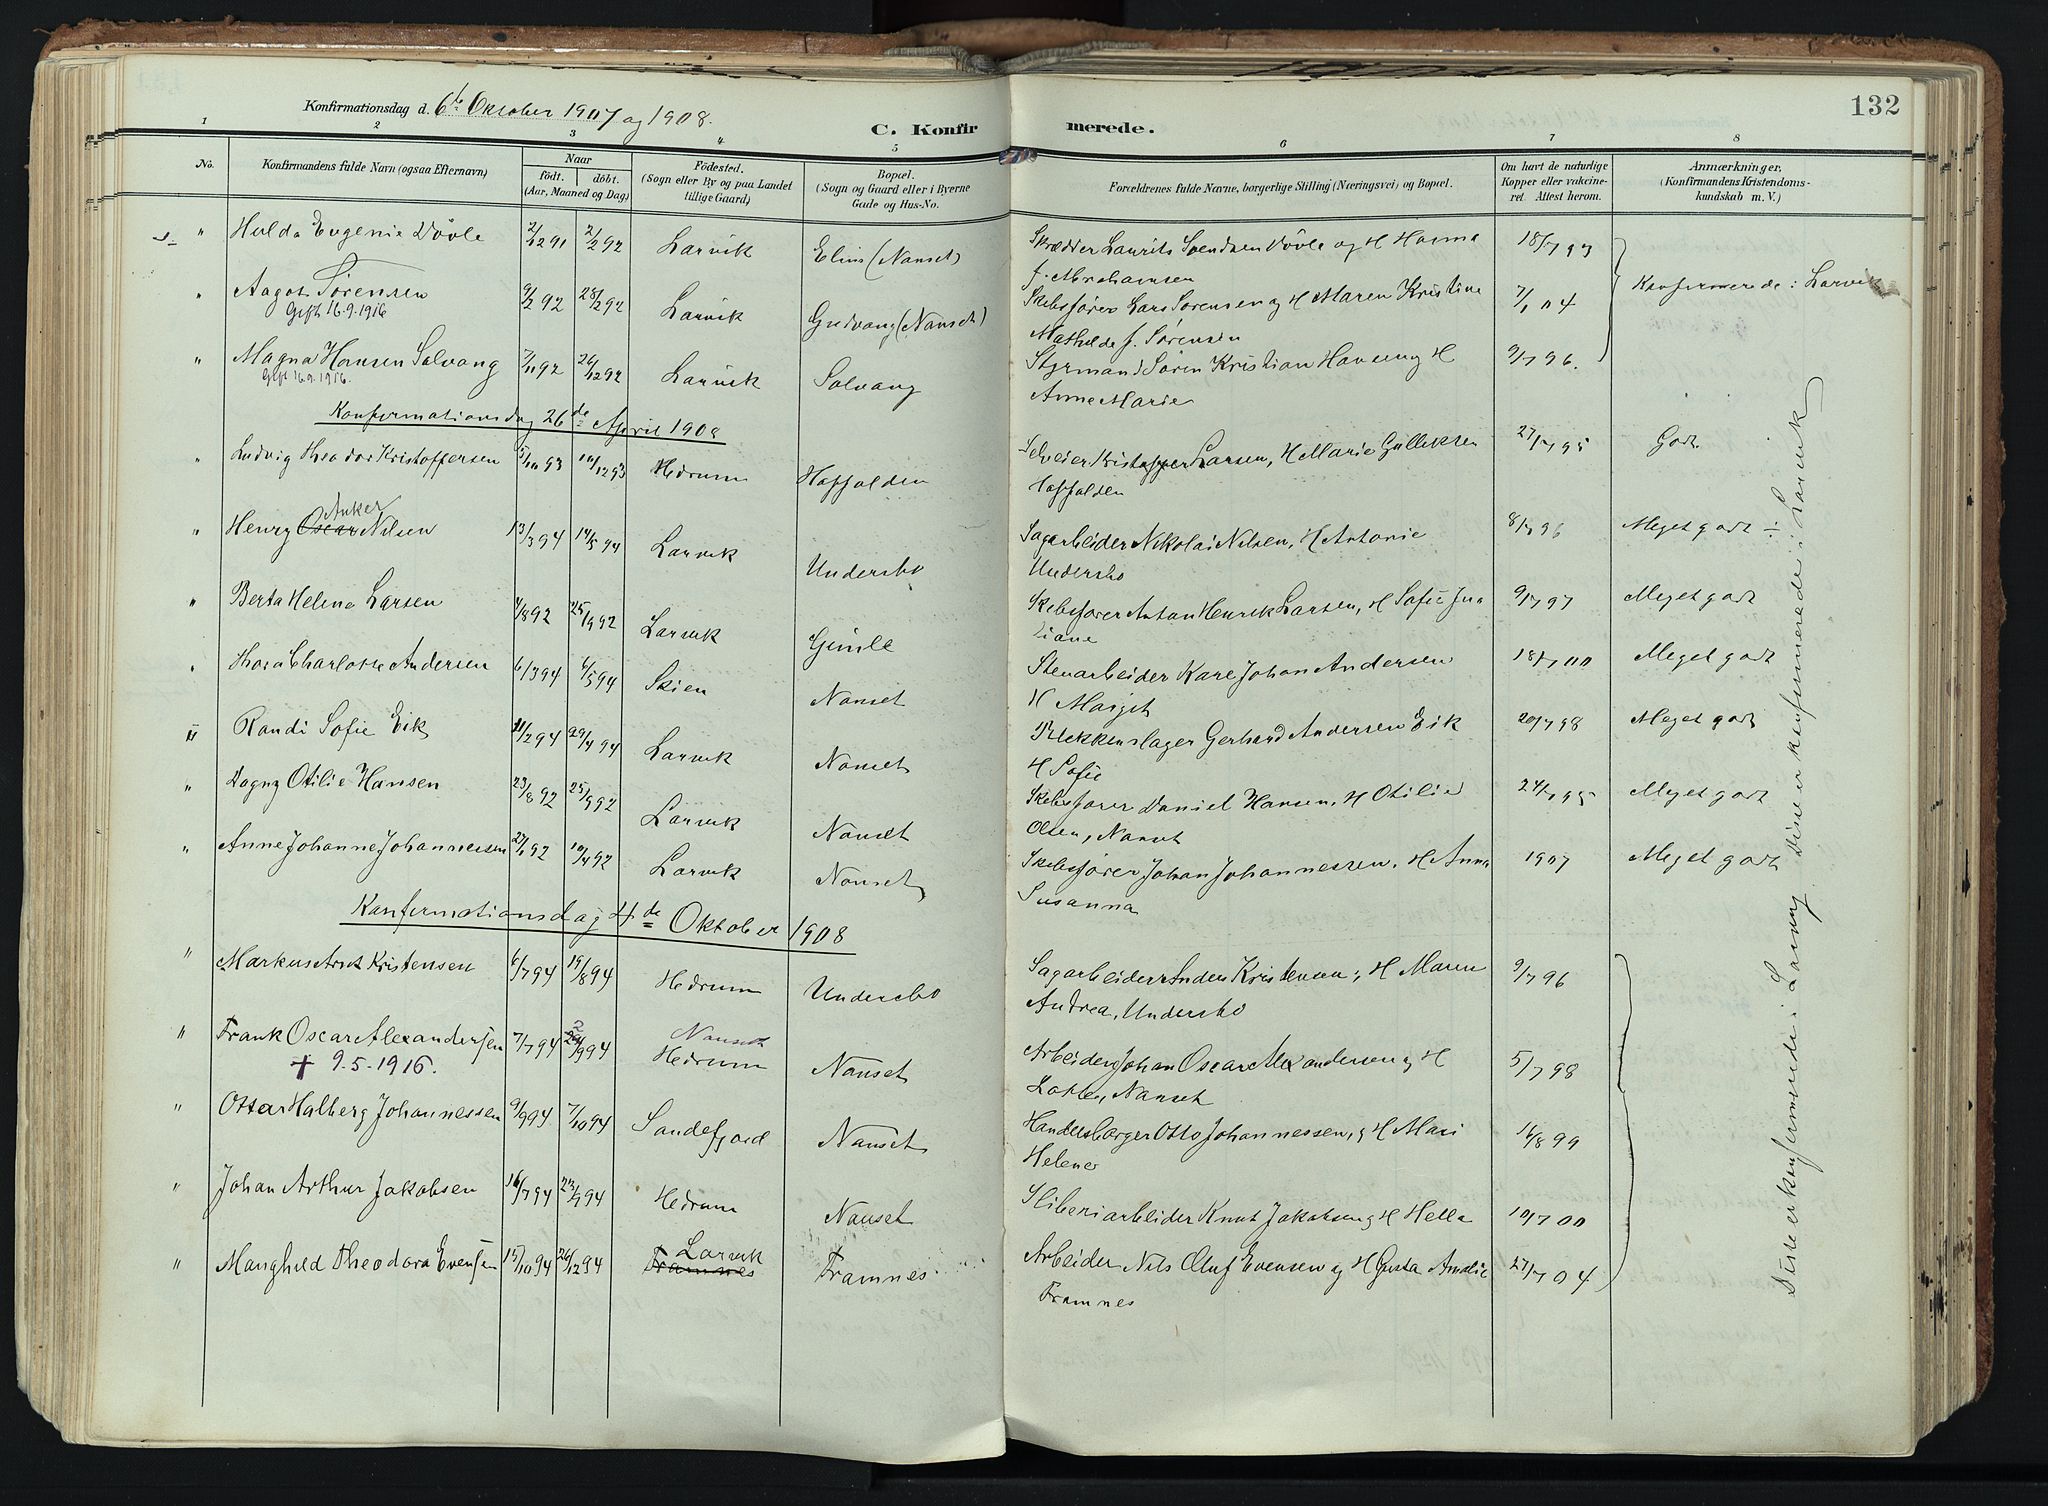 132
Konfirmationsdag d. 6te Oktober 1907 og 1908.
C. Konfirmerede.
1 2 3 4 5 6 7 8
No.
Konfirmandens fulde Navn (ogsaa Efternavn)
Naar
födt. döbt.
(Aar, Maaned og Dag)
Födested.
(Sogn eller By og paa Landet
tillige Gaard)
Bopæl.
(Sogn og Gaard eller i Byerne
Gade og Hus-No.
Forældrenes fulde Navne, borgerlige Stilling (Næringsvei) og Bopæl.
Om havt de naturlige
Kopper eller vakcine-
ret. Attest herom.
Anmærkninger,
(Konfirmandens Kristendoms-
kundskab m. V.)
" Hulda Eugenie Vövle 2/12 91 2/2 92 Larvik (Nanset) Skrædder Laurits Svendsen Vövle og H Hanna 18/7 93
f. Abrahamsen
" Aagot Sørensen 9/2 92 28/2 92 Larvik (Nanset) Skibsfører Lars Sørensen og H Maren Kristine 7/1 04 Konfirmerede i Larvik
Gift 16.9.1916
Mathilde f. Sørensen
" Magna Hansen Solvang 7/11 92 26/12 92 Larvik Solvang Styrmand Sören Kristian Hansen og H 9/7 96.
Gift 16.9.1916.
Anne Marie
Konfirmationsdag 26de April 1908
" Ludvig Theodor Kristoffersen 5/10 93 10/12 93 Hedrum Hoffalden Selveier Kristoffer Larsen, H Marie Gulliksen 27/7 95 Godt
Hoffalden
Anker
" Henry Oscar Nilsen 13/3 94 14/5 94 Larvik Undersbo Sagarbeider Nikolai Nilsen, H Antonie 8/7 96 Meget godt ÷
Undersbo
" Berta Helene Larsen 4/8 92 25/9 92 Larvik Gimle Skibsfører Anton Henrik Larsen, H Sofie Jul 9/7 97 Meget godt
iane
" Thora Charlotte Andersen 6/3 94 6/5 94 Skien Nanset Stenarbeider Karl Johan Andersen 18/7 00 Meget godt
H Margit
" Randi Sofie Eik 11/2 94 29/4 94 Larvik Nanset Blikkenslager Gerhard Andersen Eik 20/7 98 Meget godt
H Sofie
" Dagny Otilie Hansen 23/8 92 25/9 92 Larvik Nanset Skibsfører Daniel Hansen, H Otilie 24/7 95 Meget godt
Olsen, Nanset
" Anne Johanne Johannessen 27/1 92 10/4 92 Larvik Nanset Skibsfører Johan Johannessen, H Anna 1907 Meget godt
Susanna
Konfirmationsdag 4de Oktober 1908
" Markus Kristensen 6/7 94 19/8 94 Hedrum Undersbo Sagarbeider Anders Kristensen, H Maren 9/7 96
Andrea, Undersbo
Nanset
" Frank Oscar Alexandersen 7/7 94 2/9 94 Hedrum Nanset Arbeider Johan Oscar Alexandersen og H 5/7 98
+ 9.5.1916.
Nanset
" Ottar Halberg Johannessen 9/9 94 7/10 94 Sandefjord Nanset Handelsborger Otto Johannessen, og H Mari 16/8 99
Helene
" Johan Arthur Jakobsen 16/7 94 23/9 94 Hedrum Nanset Sliberiarbeider Knut Jakobsen og H Hella 10/7 00
Larvik
" Manghild Theodora Evensen 15/10 94 26/12 94 Framnes Framnes Arbeider Nils Oluf Evensen og H Gusta Amalie 27/7 04
Framnes
Disse er konfirmerede i Larvik
Disse er konfirmerede i